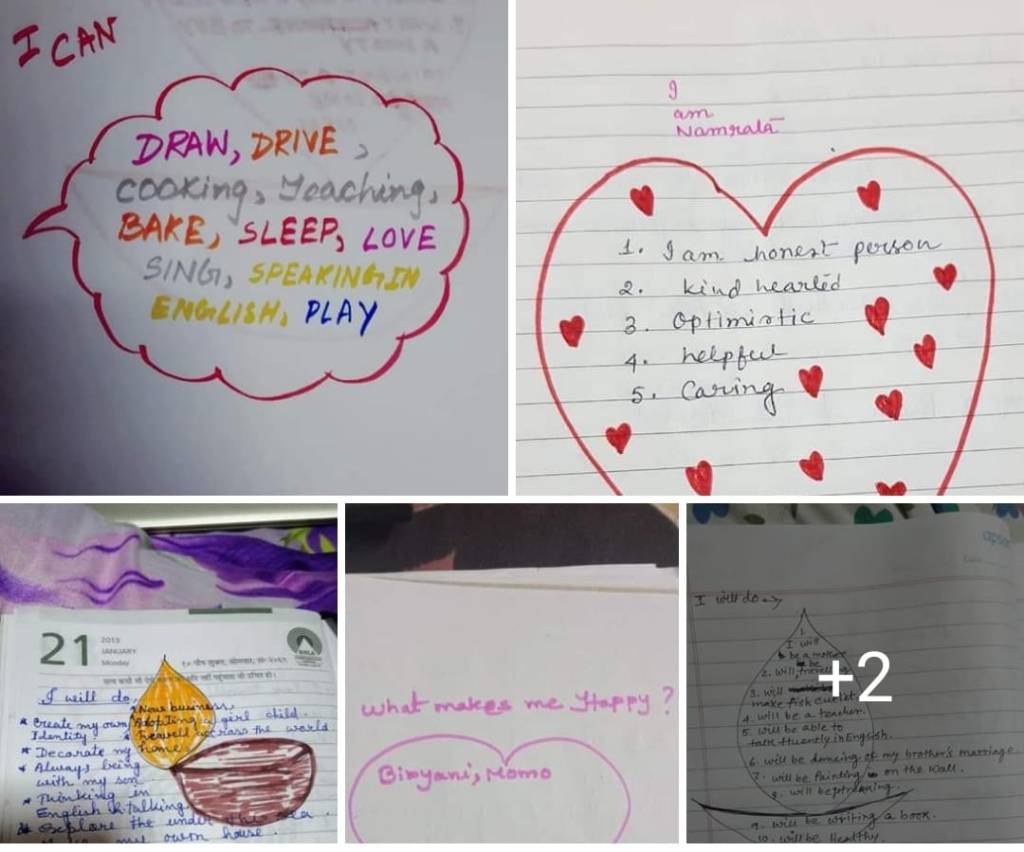 I CAN
DRAW, DRIVE,
COOKING, Teaching,
BAKE, SLEEP, LOVE
SING, SPEAKING IN
ENGLISH, PLAY
I
am
Namrata
1. I am honest person
2. kind hearted
3. Optimistic
4. helpful
5. Caring
21
2019
JANUARY
Monday
I will do
New business
* Create my own
Adopting a girl child.
Identity
* travell across the world
* Decorate my home
* Always being
with my son
* Thinking in
English & talking
* Explore the under the sea.
my own house.
What makes me Happy?
Biryani, Momo
I will do →
1.
I will
be a mother
2. will be travelling
3. will
make fish cutlet.
4. will be a teacher.
5. will be able to
talk fluently in English.
6. will be dancing of my brother's marriage
7. will be Painting on the wall.
8. will be
9. will be writing a book.
10. will be Healthy.
+2